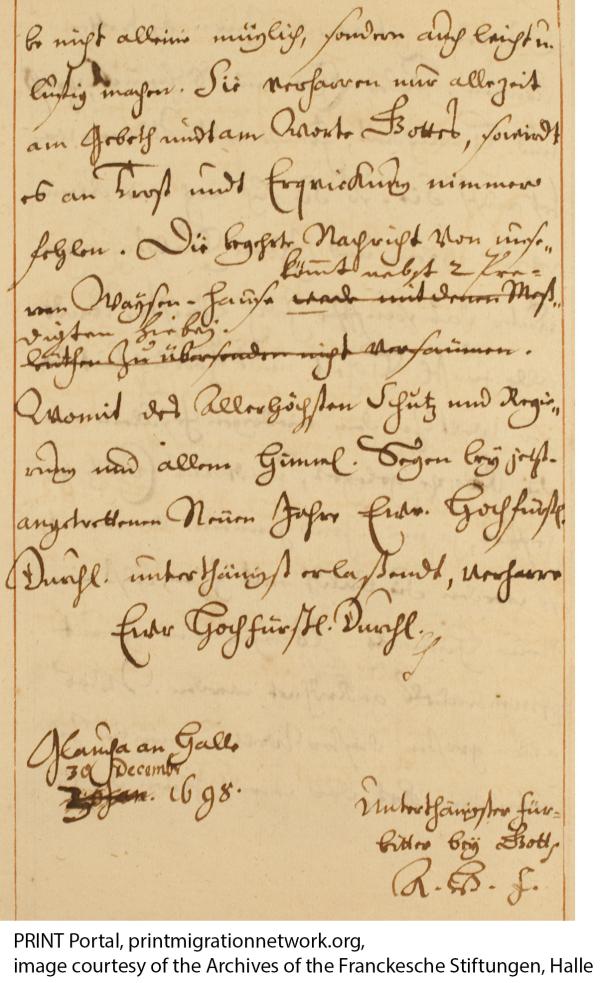 be nicht alleine müglich, sondern auch leicht u.
lustig machen. Sie verharren nur allezeit
am Gebeth undt am Worte Gottes, so wirdt
es an Trost undt Erqvickung nimmer
fehlen. Die begehrte Nachricht von unse-
kömmt nebst 2 Pre-
ren Waysen-Hause werde mit denen Meß-
digten hiebey.
leuthen zu übersenden nicht versäumen.
Womit des Allerhöchsten Schutz und Regie-
rung und allem Himml. Seegen bey jetzt-
angetrettenen Neuen Jahre Ewr. Hochfürstl.
Durchl. unterthänigst erlaßendt, verharre
Ewr Hochfürstl. Durchl.
Glaucha an Halle
30 Decembr
Jan. 1698.
Unterthänigster Für-
bitter bey Gott
A. H. F.
PRINT Portal, printmigrationnetwork.org,
image courtesy of the Archives of the Franckesche Stiftungen, Halle